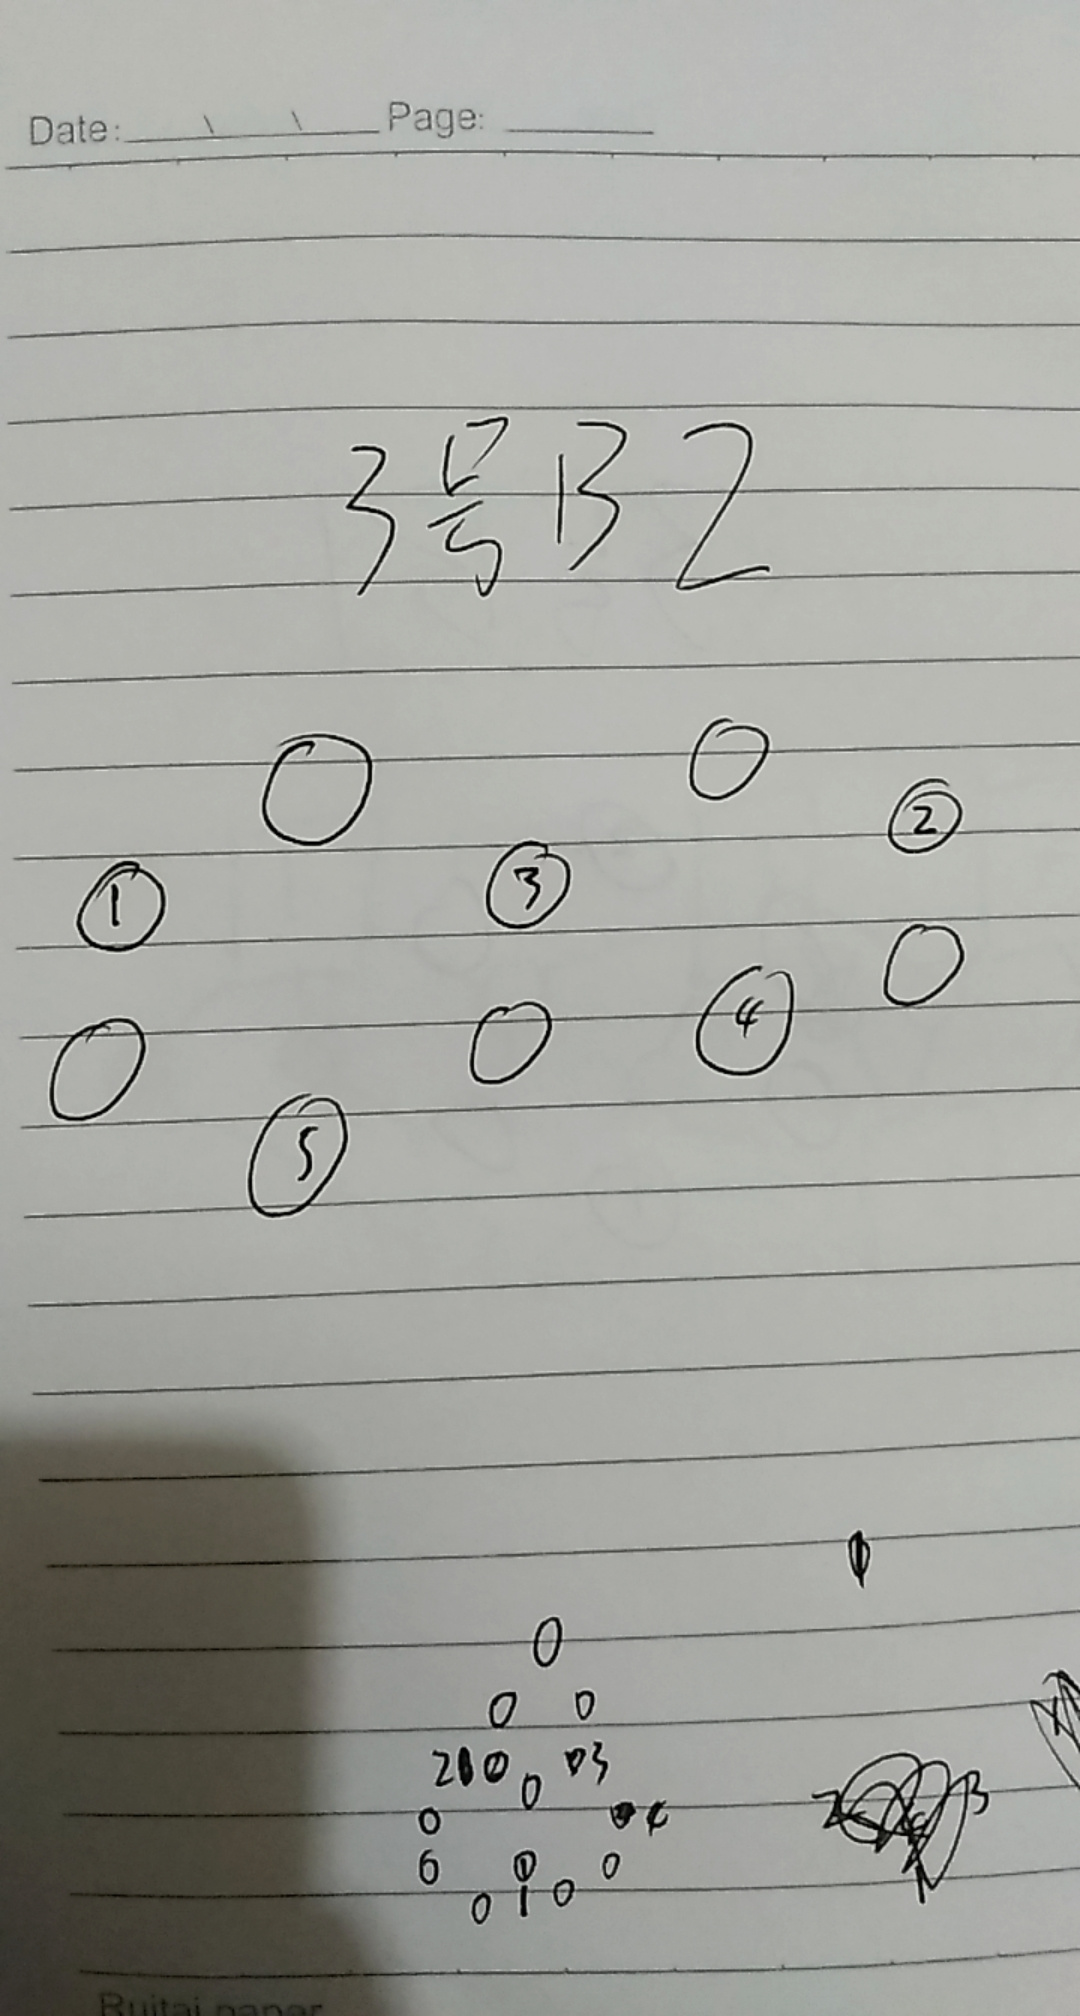 Date: Page:
3号B2
2
1 3
4
5
0
0 0
2 0 0 3
0
0 4
6 0 0
0 1 0
2 3
Ruitai paper